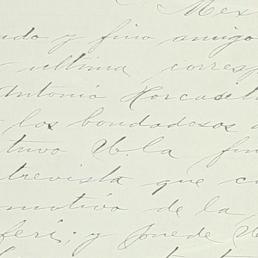 Mex
y fino amigo
ultima corres
Antonio Horcasit
los bondadosos
tuvo U. la fin
trevista que c
motivo de la
feri; y puede U